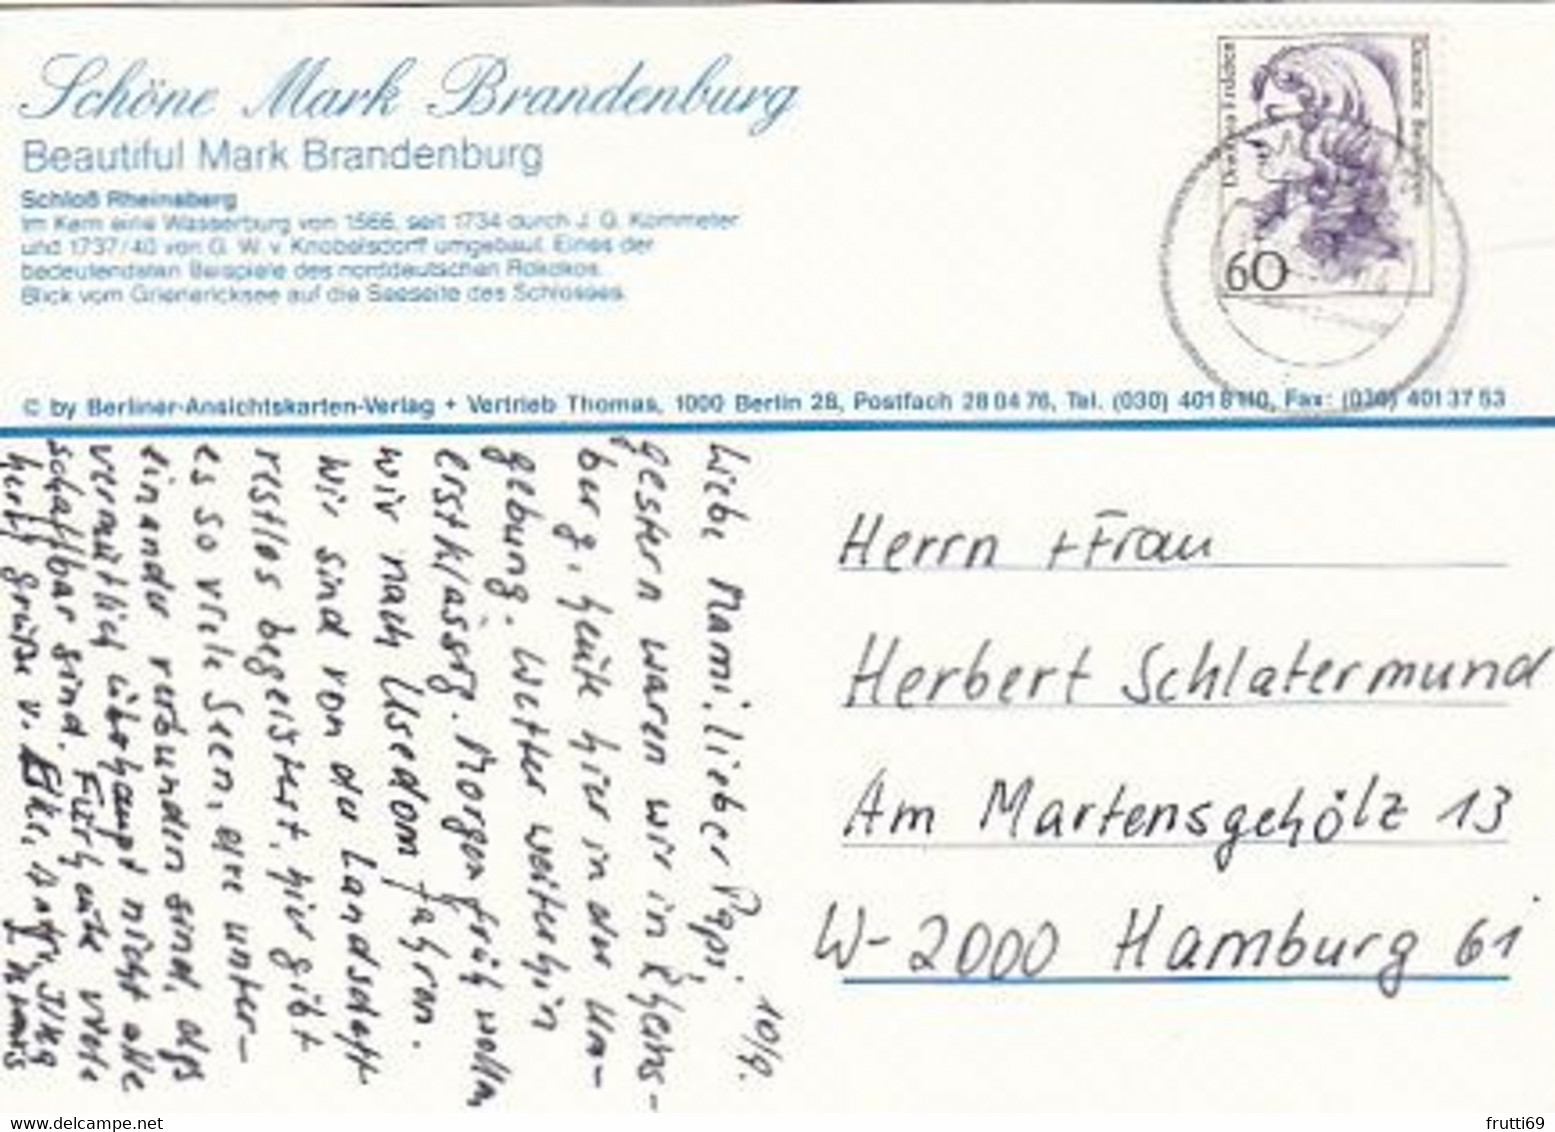 Schöne Mark Brandenburg
Beautiful Mark Brandenburg
Schloß Rheinsberg
Im Kern eine Wasserburg von 1566, seit 1734 durch J. G. Kommeter
und 1737/40 von G. W. v. Knobelsdorff umgebaut. Eines der
bedeutendsten Beispiele des norddeutschen Rokokos.
Blick vom Grienericksee auf die Seeseite des Schlosses.
Deutsche Bundespost
60
© by Berliner-Ansichtskarten-Verlag + Vertrieb Thomas, 1000 Berlin 28, Postfach 28 04 76, Tel. (030) 401 8110, Fax: (030) 401 37 53
10/9.
Liebe Mami, lieber Papi,
gestern waren wir in Rheins-
berg, heute hier in der Um-
gebung. Wetter weiterhin
erstklassig. Morgen früh wollen
wir nach Usedom fahren.
Wir sind von der Landschaft
restlos begeistert, hier gibt
es so viele Seen, die unter-
einander verbunden sind, daß
vermutlich überhaupt nicht alle
schaffbar sind. Für heute viele
herzl. Grüße v.
Herrn + Frau
Herbert Schlatermund
Am Martensgehölz 13
W-2000 Hamburg 61
frutti69